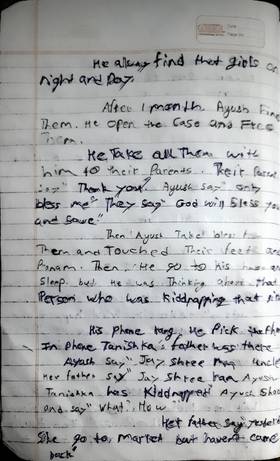 He allway find that girls on
night and Day.
After 1 month Ayush Fine
Them. He open the Case and Free
Them.
He Take all Them with
him to their Parents. Their Parent
say" Thank you". Ayush say" only
bless me" They say" God will bless you
and save"
Then Ayush Take bless t
Them and Touched Their feet and
Panam. Then, He go to his and
sleep. but He was Thinking above that
Person who was kiddnapping that
His phone rang. He Pick the Pho
In phone Tanishka father was there
Ayush say" Jay shree uncle
Her father say" Jay shree Ram Ayush
Tanishka has kiddnapped Ayush Shoc
and say" What? How
Her father say" yesterd
She go to market but havent came
back"